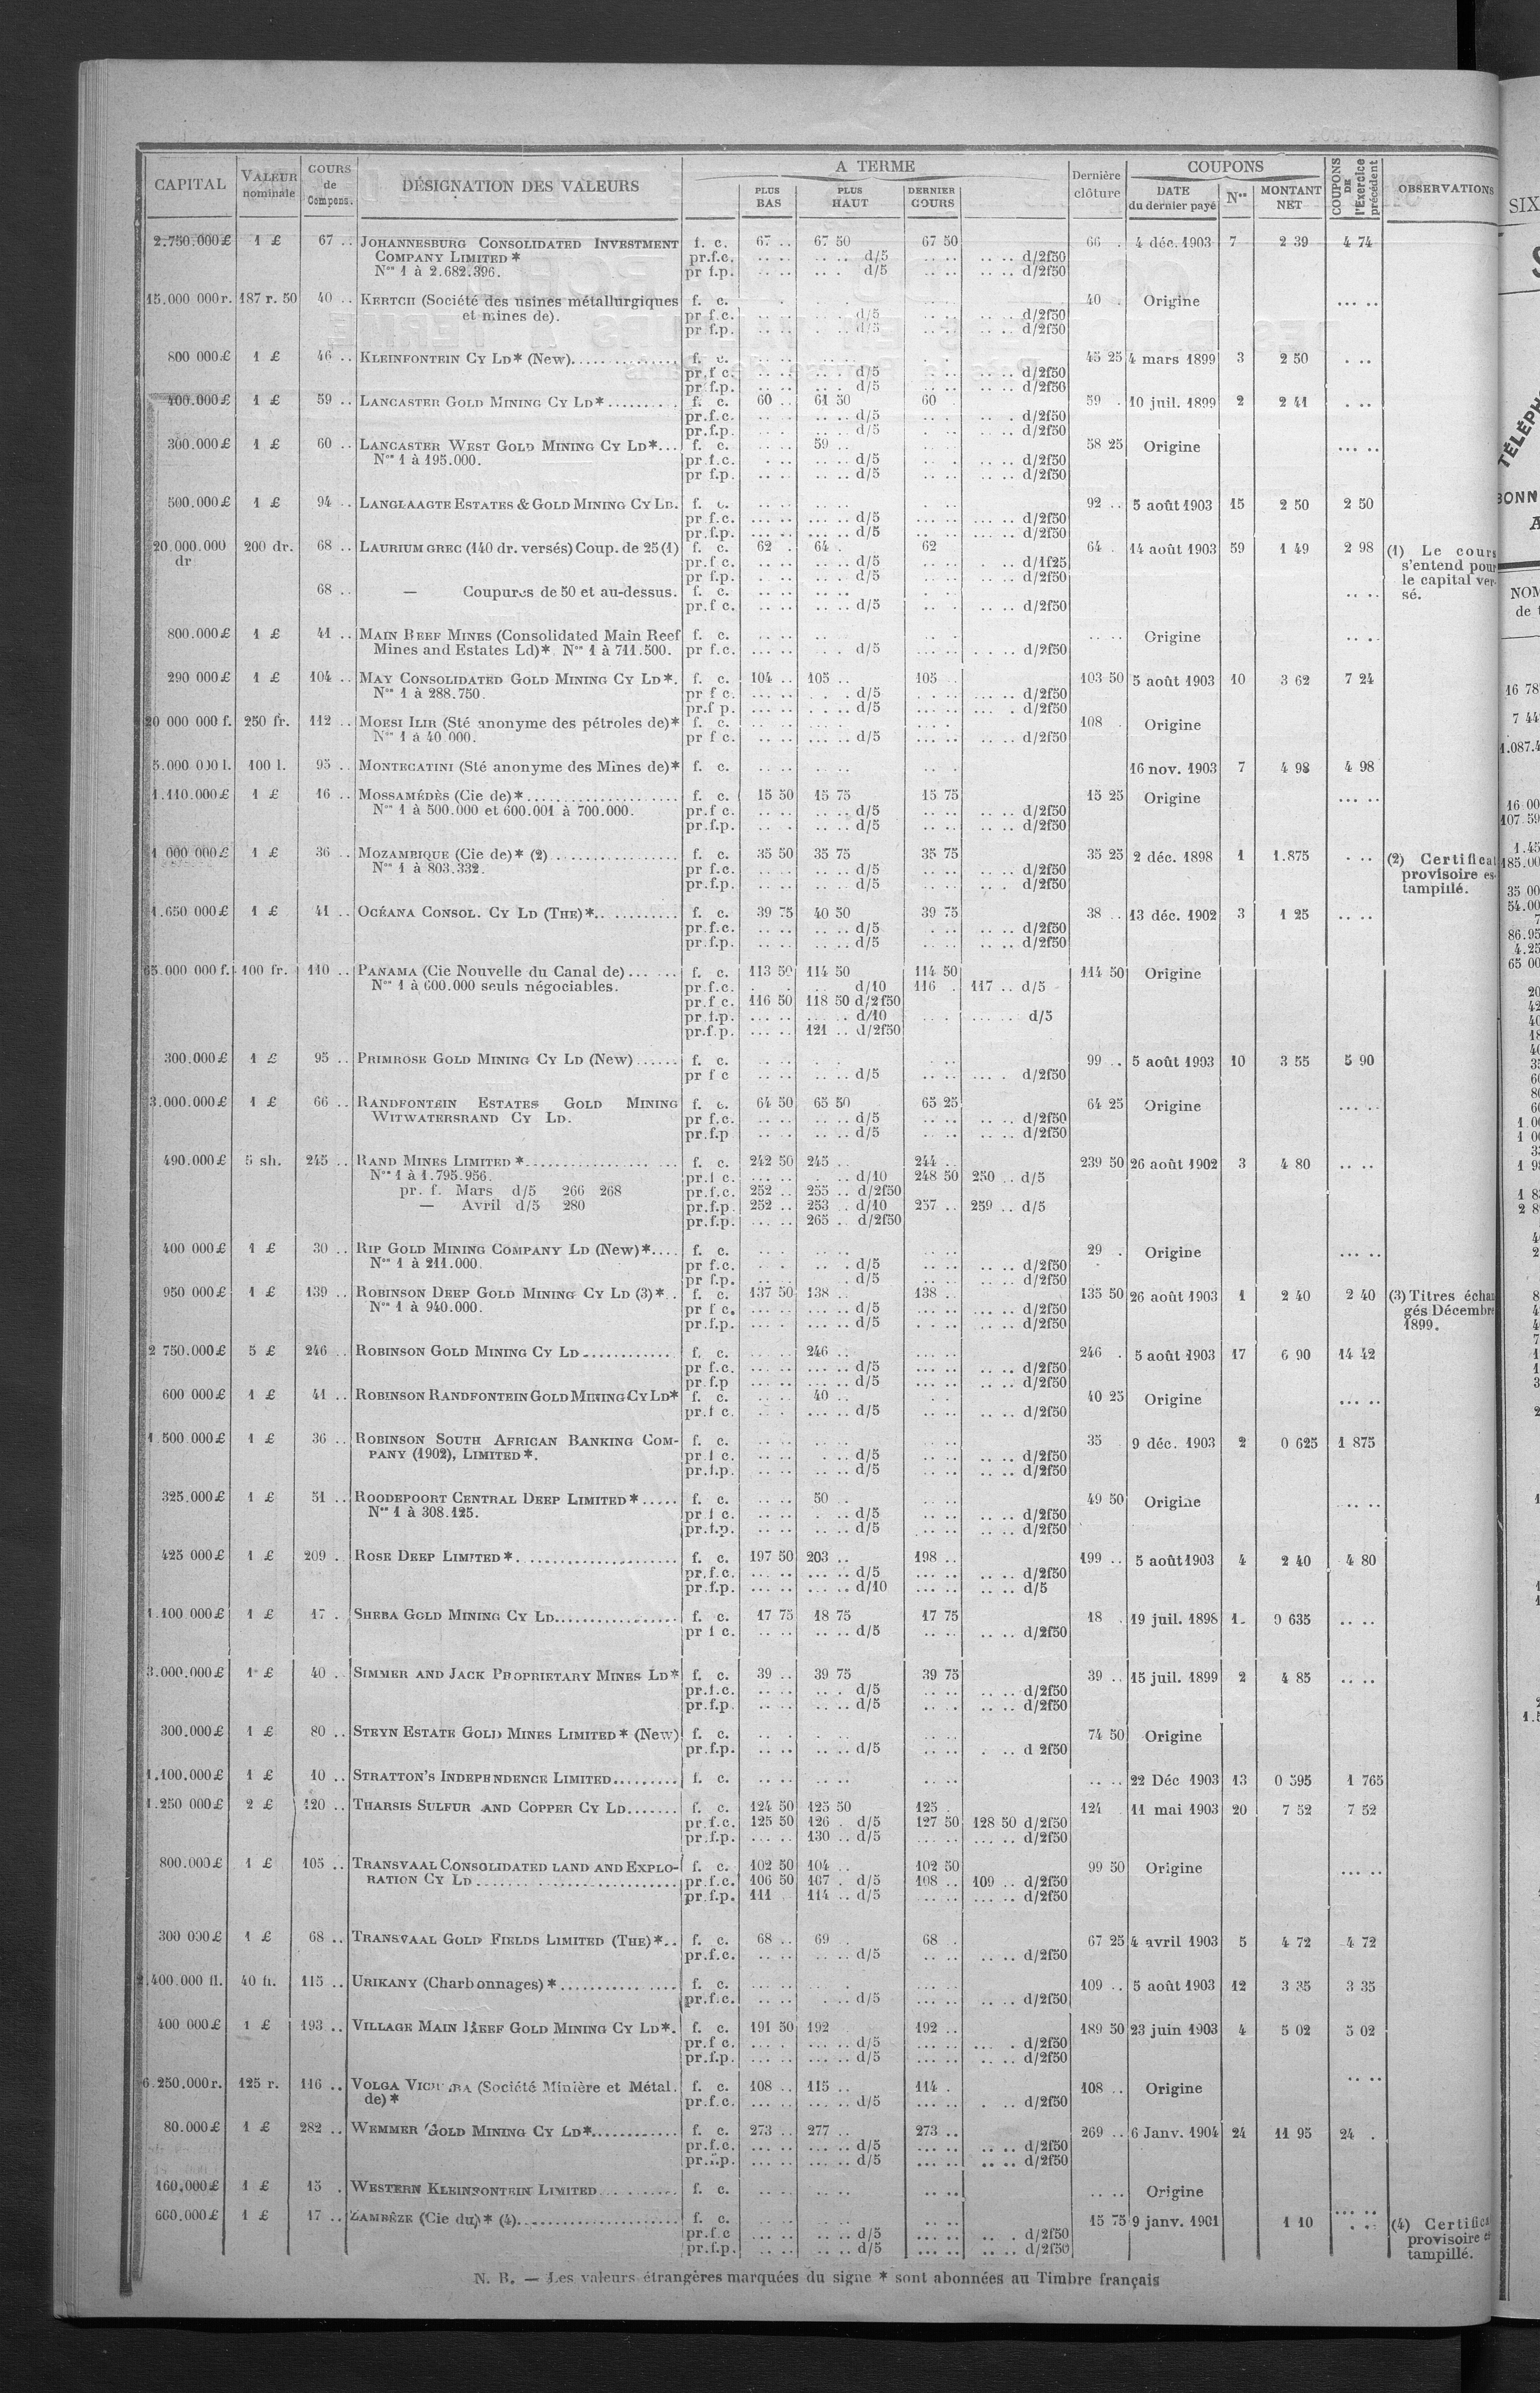 CAPITAL VALEUR nominale COURS de Compens. DÉSIGNATION DES VALEURS A TERME PLUS BAS PLUS HAUT DERNIER COURS Dernière clôture COUPONS DATE du dernier payé Nos MONTANT NET COUPONS DE l'Exercice précédent OBSERVATIONS
2.750.000£ 1 £ 67 .. JOHANNESBURG CONSOLIDATED INVESTMENT f. c. 67 .. 67 50 67 50 66 . 4 déc. 1903 7 2 39 4 74
COMPANY LIMITED * pr.f.c. d/5 d/2f50
Nos 1 à 2.682.396. pr f.p. d/5 d/2f50
15.000 000r. 187 r. 50 40 .. KERTCH (Société des usines métallurgiques f. c. 40 . Origine
et mines de). pr f.c. d/5 d/2f50
pr f.p. d/5 d/2f50
800 000£ 1 £ 46 .. KLEINFONTEIN CY LD* (New) f. c. 45 25 4 mars 1899 3 2 50
pr.f c. d/5 d/2f50
pr f.p. d/5 d/2f50
400.000£ 1 £ 59 .. LANCASTER GOLD MINING CY LD* f. c. 60 .. 61 50 60 . 59 . 10 juil. 1899 2 2 41
pr.f.c. d/5 d/2f50
pr.f.p. d/5 d/2f50
300.000£ 1 £ 60 .. LANCASTER WEST GOLD MINING CY LD*... f. c. 59 .. 58 25 Origine
Nos 1 à 195.000. pr f.c. d/5 d/2f50
pr f.p. d/5 d/2f50
500.000£ 1 £ 94 .. LANGLAAGTE ESTATES & GOLD MINING CY LD. f. c. 92 .. 5 août 1903 15 2 50 2 50
pr f.c. d/5 d/2f50
pr.f.p. d/5 d/2f50
20.000.000 200 dr. 68 .. LAURIUM GREC (140 dr. versés) Coup. de 25 (1) f. c. 62 . 64 . 62 64 . 14 août 1903 59 1 49 2 98 (1) Le cours
dr pr.f c. d/5 d/1f25 s'entend pour
pr f.p. d/5 d/2f50 le capital ver-
68 .. — Coupures de 50 et au-dessus. f. c. sé.
pr.f c. d/5 d/2f50
800.000£ 1 £ 41 .. MAIN REEF MINES (Consolidated Main Reef f. c. Origine
Mines and Estates Ld)* Nos 1 à 711.500. pr f.c. d/5 d/2f50
290 000£ 1 £ 104 .. MAY CONSOLIDATED GOLD MINING CY LD*. f. c. 104 .. 105 .. 105 103 50 5 août 1903 10 3 62 7 24
Nos 1 à 288.750. pr f c. d/5 d/2f50
pr.f p. d/5 d/2f50
20 000 000 f. 250 fr. 112 .. MOESI ILIR (Sté anonyme des pétroles de)* f. c. 108 . Origine
Nos 1 à 40 000. pr f c. d/5 d/2f50
5.000 000 l. 100 l. 95 .. MONTECATINI (Sté anonyme des Mines de)* f. c. 16 nov. 1903 7 4 98 4 98
1.110.000£ 1 £ 16 .. MOSSAMÉDÈS (Cie de)* f. c. 15 50 15 75 15 75 15 25 Origine
Nos 1 à 500.000 et 600.001 à 700.000. pr.f c. d/5 d/2f50
pr.f.p. d/5 d/2f50
1 000 000£ 1 £ 36 .. MOZAMBIQUE (Cie de)* (2) f. c. 35 50 35 75 35 75 35 25 2 déc. 1898 1 1.875 (2) Certificat
Nos 1 à 803.332. pr f.c. d/5 d/2f50 provisoire es-
pr.f.p. d/5 d/2f50 tampillé.
1.650 000£ 1 £ 41 .. OCÉANA CONSOL. CY LD (THE)* f. c. 39 75 40 50 39 75 38 .. 13 déc. 1902 3 1 25
pr.f.c. d/5 d/2f50
pr.f.p. d/5 d/2f50
65.000 000 f. 100 fr. 110 .. PANAMA (Cie Nouvelle du Canal de) f. c. 113 50 114 50 114 50 114 50 Origine
Nos 1 à 600.000 seuls négociables. pr.f.c. d/10 116 . 117 .. d/5
pr.f c. 116 50 118 50 d/2f50
pr.f.p. d/10 d/5
pr.f.p. 121 .. d/2f50
300.000£ 1 £ 95 .. PRIMROSE GOLD MINING CY LD (New) f. c. 99 .. 5 août 1903 10 3 55 5 90
pr f c d/5 d/2f50
3.000.000£ 1 £ 66 .. RANDFONTEIN ESTATES GOLD MINING f. c. 64 50 65 50 65 25 64 25 Origine
WITWATERSRAND CY LD. pr f.c. d/5 d/2f50
pr.f.p d/5 d/2f50
490.000£ 5 sh. 245 .. RAND MINES LIMITED * f. c. 242 50 245 .. 244 .. 239 50 26 août 1902 3 4 80
Nos 1 à 1.795.956. pr.f c. d/10 248 50 250 .. d/5
pr. f. Mars d/5 266 268 pr.f.c. 252 .. 255 .. d/2f50
— Avril d/5 280 pr.f.p. 252 .. 253 .. d/10 257 .. 259 .. d/5
pr.f.p. 265 .. d/2f50
400 000£ 1 £ 30 .. RIP GOLD MINING COMPANY LD (New)*.... f. c. 29 . Origine
Nos 1 à 211.000. pr f.c. d/5 d/2f50
pr f.p. d/5 d/2f50
950 000£ 1 £ 139 .. ROBINSON DEEP GOLD MINING CY LD (3)*.. f. c. 137 50 138 .. 138 .. 135 50 26 août 1903 1 2 40 2 40 (3) Titres échan
Nos 1 à 940.000. pr f c. d/5 d/2f50 gés Décembre
pr.f.p. d/5 d/2f50 1899.
2 750.000£ 5 £ 246 .. ROBINSON GOLD MINING CY LD f. c. 246 .. 246 . 5 août 1903 17 6 90 14 42
pr f.c. d/5 d/2f50
pr.f.p d/5 d/2f50
600 000£ 1 £ 41 .. ROBINSON RANDFONTEIN GOLD MINING CY LD* f. c. 40 .. 40 25 Origine
pr.f c. d/5 d/2f50
1 500 000£ 1 £ 36 .. ROBINSON SOUTH AFRICAN BANKING COM- f. c. 35 9 déc. 1903 2 0 625 1 875
PANY (1902), LIMITED *. pr.f c. d/5 d/2f50
pr.f.p. d/5 d/2f50
325.000£ 1 £ 51 .. ROODEPOORT CENTRAL DEEP LIMITED *..... f. c. 50 . 49 50 Origine
Nos 1 à 308.125. pr f c. d/5 d/2f50
pr.f.p. d/5 d/2f50
425 000£ 1 £ 209 .. ROSE DEEP LIMITED * f. c. 197 50 203 .. 198 .. 199 .. 5 août 1903 4 2 40 4 80
pr.f.c. d/5 d/2f50
pr.f.p. d/10 d/5
1.100 000£ 1 £ 17 . SHEBA GOLD MINING CY LD f. c. 17 75 18 75 17 75 18 . 19 juil. 1898 1. 0 635
pr f c. d/5 d/2f50
3.000.000£ 1 £ 40 . SIMMER AND JACK PROPRIETARY MINES LD* f. c. 39 .. 39 75 39 75 39 .. 15 juil. 1899 2 4 85
pr.f.c. d/5 d/2f50
pr.f.p. d/5 d/2f50
300.000£ 1 £ 80 .. STEYN ESTATE GOLD MINES LIMITED * (New) f. c. 74 50 Origine
pr.f.p. d/5 d 2f50
1.100.000£ 1 £ 10 .. STRATTON'S INDEPENDENCE LIMITED f. c. 22 Déc 1903 13 0 595 1 765
1.250 000£ 2 £ 120 .. THARSIS SULFUR AND COPPER CY LD f. c. 124 50 125 50 125 . 124 . 11 mai 1903 20 7 52 7 52
pr.f.c. 125 50 126 . d/5 127 50 128 50 d/2f50
pr.f.p. 130 .. d/5 d/2f50
800.000£ 1 £ 105 .. TRANSVAAL CONSOLIDATED LAND AND EXPLO- f. c. 102 50 104 .. 102 50 99 50 Origine
RATION CY LD pr.f.c. 106 50 107 . d/5 108 .. 109 .. d/2f50
pr.f.p. 111 . 114 .. d/5 d/2f50
300 000£ 1 £ 68 .. TRANSVAAL GOLD FIELDS LIMITED (THE)*.. f. c. 68 .. 69 . 68 . 67 25 4 avril 1903 5 4 72 4 72
pr.f.c. d/5 d/2f50
.400.000 fl. 40 fl. 115 .. URIKANY (Charbonnages) * f. c. 109 .. 5 août 1903 12 3 35 3 35
pr.f.c. d/5 d/2f50
400 000£ 1 £ 193 .. VILLAGE MAIN REEF GOLD MINING CY LD*. f. c. 191 50 192 192 .. 189 50 23 juin 1903 4 5 02 5 02
pr.f c. d/5 d/2f50
pr.f.p. d/5 d/2f50
6.250.000r. 125 r. 116 .. VOLGA (Société Minière et Métal. f. c. 108 .. 115 .. 114 . 108 .. Origine
de) * pr.f.c. d/5 d/2f50
80.000£ 1 £ 282 .. WEMMER GOLD MINING CY LD* f. c. 273 .. 277 .. 273 .. 269 .. 6 Janv. 1904 24 11 95 24 .
pr.f.c. d/5 d/2f50
pr.f.p. d/5 d/2f50
160,000£ 1 £ 15 . WESTERN KLEINFONTEIN LIMITED f. c. Origine
660.000£ 1 £ 17 .. ZAMBÈZE (Cie du) * (4) f. c. 15 75 9 janv. 1901 1 10 (4) Certifica
pr.f.c d/5 d/2f50 provisoire
pr.f.p. d/5 d/2f50 tampillé.
N. B. — Les valeurs étrangères marquées du signe * sont abonnées au Timbre français
SIX
TÉLÉPH
BONN
NOM
de
16 78
7 44
1.087.4
16 00
107 59
1.45
185.00
35 00
54.00
7
86.95
4.25
65 00